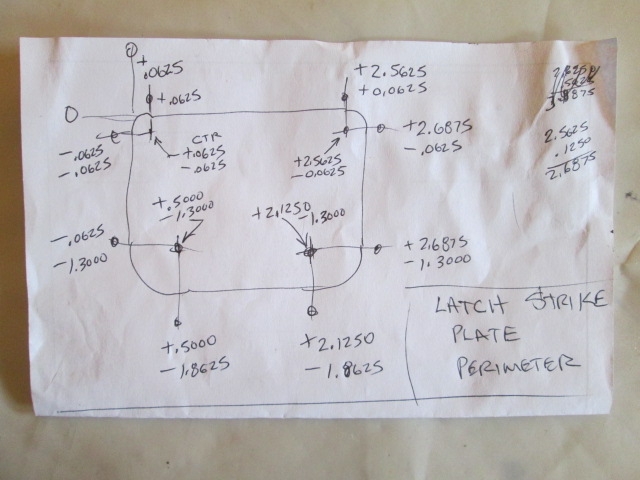 0
+
.0625
+.0625
+2.5625
+0.0625
0
-.0625
-.0625
CTR
+.0625
-.0625
+2.5625
-0.0625
+2.6875
-.0625
2.5625
.1250
2.6875
+.5000
-1.3000
+2.1250
-1.3000
-.0625
-1.3000
+2.6875
-1.3000
+.5000
-1.8625
+2.1250
-1.8625
LATCH STRIKE
PLATE
PERIMETER